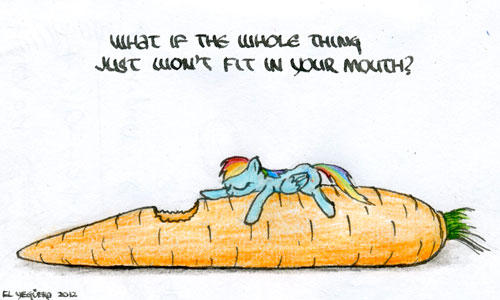 WHAT IF THE WHOLE THING
JUST WON'T FIT IN YOUR MOUTH?
EL YEGÜERO 2012